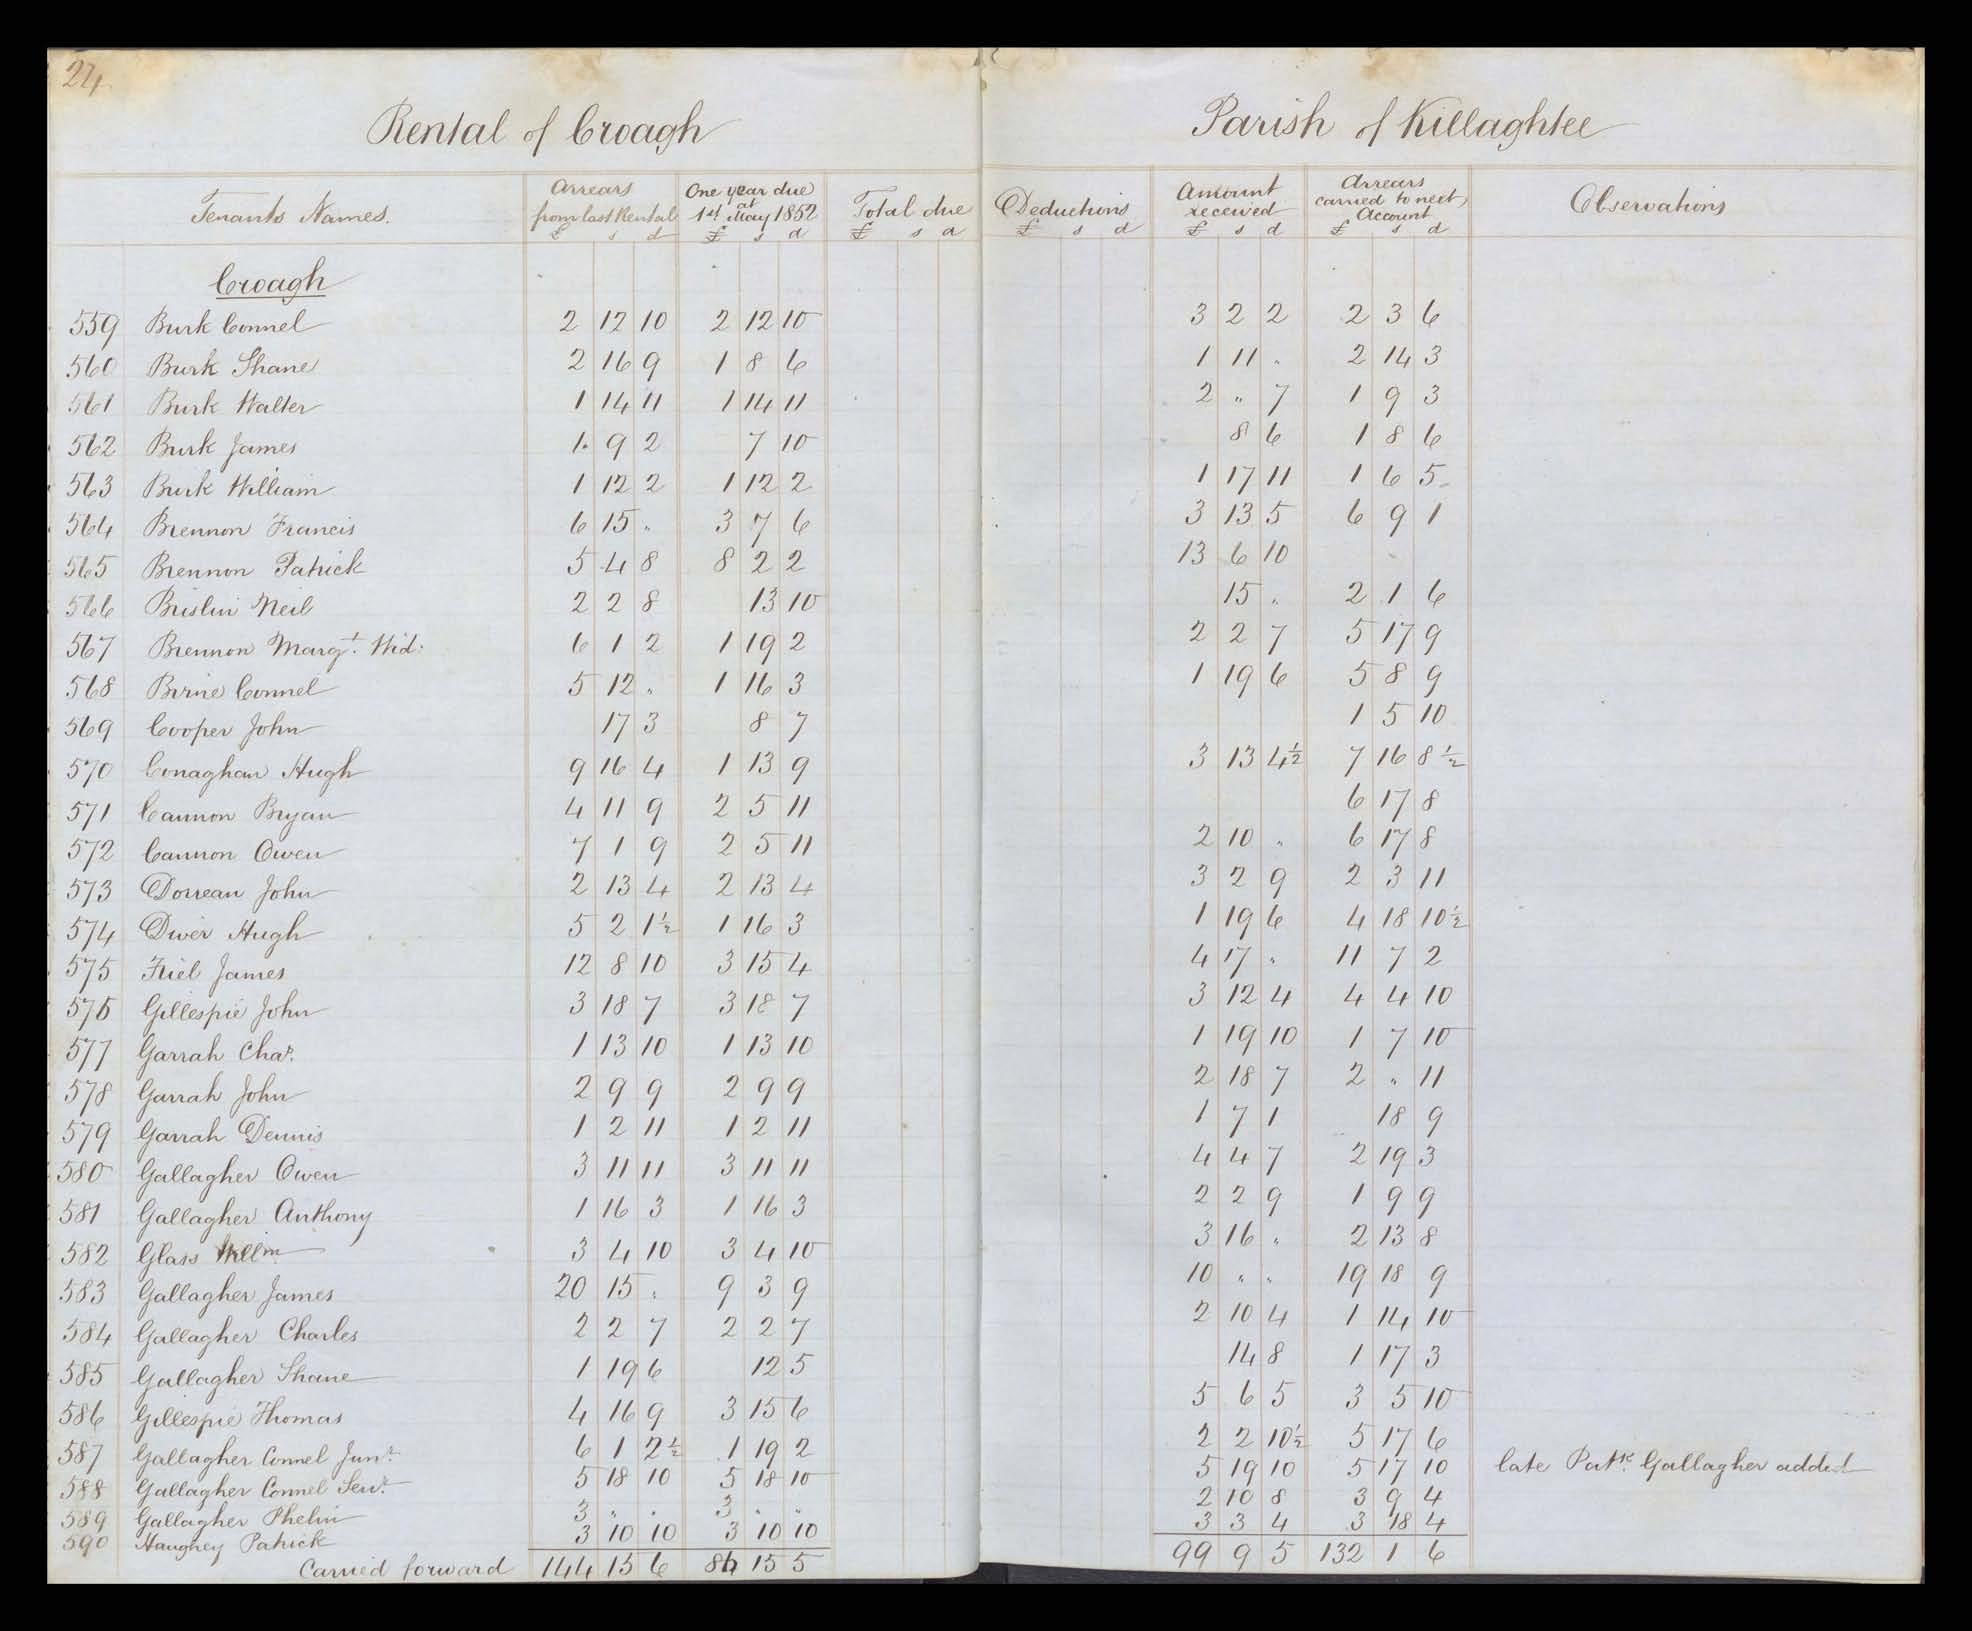 24
Rental of Croagh Parish of Killaghtee
Tenants Names. Arrears from last Rental £ s d One year due at 1st May 1852 £ s d Total due £ s d Deductions £ s d Amount received £ s d Arrears carried to next Account £ s d Observations
Croagh
559 Burk Connel 2 12 10 2 12 10 3 2 2 2 3 6
560 Burk Shane 2 16 9 1 8 6 1 11 " 2 14 3
561 Burk Walter 1 14 11 1 14 11 2 " 7 1 9 3
562 Burk James 1 9 2 7 10 8 6 1 8 6
563 Burk William 1 12 2 1 12 2 1 17 11 1 6 5
564 Brennon Francis 6 15 " 3 7 6 3 13 5 6 9 1
565 Brennon Patrick 5 4 8 8 2 2 13 6 10
566 Brislin Neil 2 2 8 13 10 15 " 2 1 6
567 Brennon Margt. Wid: 6 1 2 1 19 2 2 2 7 5 17 9
568 Birne Connel 5 12 " 1 16 3 1 19 6 5 8 9
569 Cooper John 17 3 8 7 1 5 10
570 Conaghan Hugh 9 16 4 1 13 9 3 13 4½ 7 16 8½
571 Cannon Bryan 4 11 9 2 5 11 6 17 8
572 Cannon Owen 7 1 9 2 5 11 2 10 " 6 17 8
573 Dorrean John 2 13 4 2 13 4 3 2 9 2 3 11
574 Diver Hugh 5 2 1½ 1 16 3 1 19 6 4 18 10½
575 Friel James 12 8 10 3 15 4 4 17 " 11 7 2
576 Gillespie John 3 18 7 3 18 7 3 12 4 4 4 10
577 Garrah Chas. 1 13 10 1 13 10 1 19 10 1 7 10
578 Garrah John 2 9 9 2 9 9 2 18 7 2 " 11
579 Garrah Dennis 1 2 11 1 2 11 1 7 1 18 9
580 Gallagher Owen 3 11 11 3 11 11 4 4 7 2 19 3
581 Gallagher Anthony 1 16 3 1 16 3 2 2 9 1 9 9
582 Glass Willm 3 4 10 3 4 10 3 16 " 2 13 8
583 Gallagher James 20 15 " 9 3 9 10 " " 19 18 9
584 Gallagher Charles 2 2 7 2 2 7 2 10 4 1 14 10
585 Gallagher Shane 1 19 6 12 5 14 8 1 17 3
586 Gillespie Thomas 4 16 9 3 15 6 5 6 5 3 5 10
587 Gallagher Connel Junr. 6 1 2½ 1 19 2 2 2 10½ 5 17 6
588 Gallagher Connel Senr. 5 18 10 5 18 10 5 19 10 5 17 10 late Patk. Gallagher added
589 Gallagher Phelin 3 " " 3 " " 2 10 8 3 9 4
590 Haughey Patrick 3 10 10 3 10 10 3 3 4 3 18 4
Carried forward 144 15 6 86 15 5 99 9 5 132 1 6